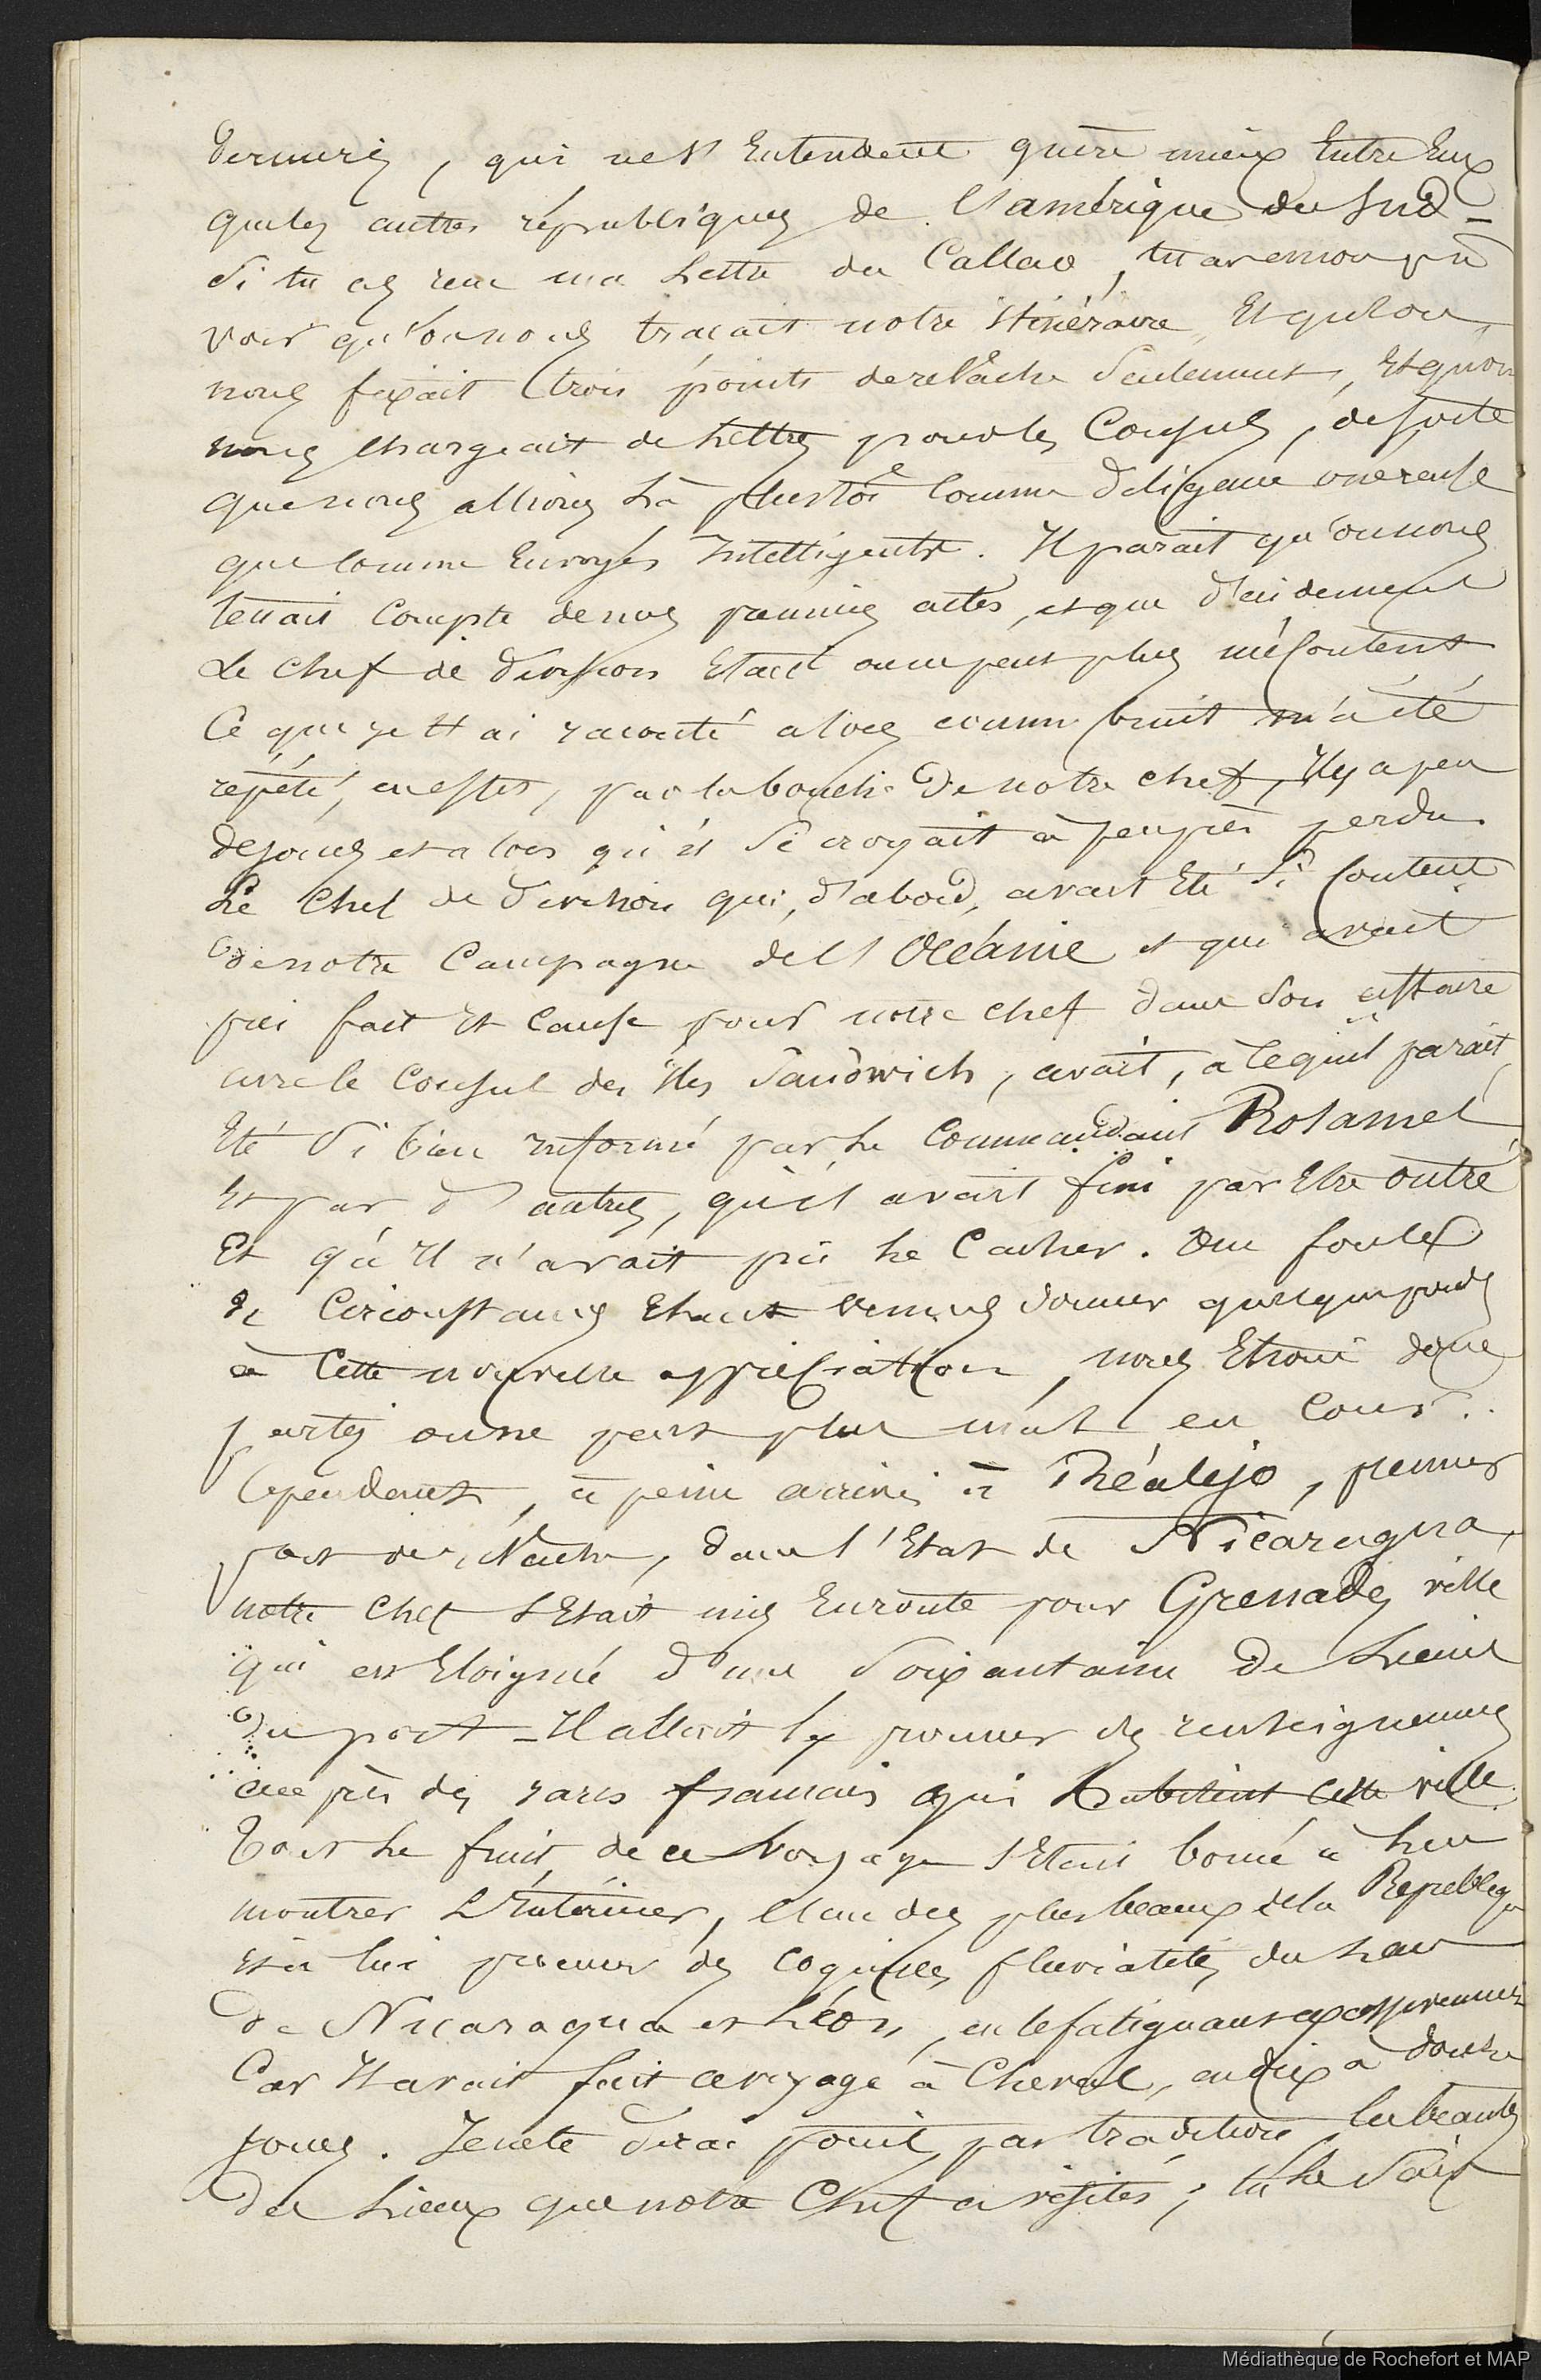 dernières, qui ne s'entendent guère mieux entre eux
que les autres républiques de l'amérique du sud –
Si tu as reçu ma lettre du Callao, tu as
voir qu'on nous traçait notre itinéraire, et qu'on
nous fixait trois points de relâche seulement, et qu'on
nous chargeait de lettres pour les Consuls, de sorte
que nous allions là plustôt comme diligence
que comme Envoyés intelligents. Il parait qu'on nous
tenait compte de nos premiers actes, et que décidement
le chef de division etait on ne peut plus mécontent
Ce que je t'ai raconté alors comme bruit m'a été
répété, en effet, par la bouche de notre chef, il y a peu
de jours et alors qu'il se croyait à peu près perdu.
Le Chef de division qui, d'abord, avait été si content
de notre Campagne de l'Océanie et qui avait
pris fait et cause pour notre chef dans son affaire
avec le Consul des îles Sandwich, avait, à ce qu'il parait,
été si bien informé par le Commandant Rosamel
et par d'autres, qu'il avait fini par être outré
Et qu'il n'avait pu le cacher. Une foule
de circonstances etant venues donner quelque poids
à cette nouvelle appréciation, nous etions donc
partis on ne peut plus mal en Cour.
Cependant, à peine arrivés à Réalejo, premier
port de relâche, dans l'Etat de Nicaragua,
notre chef s'était mis en route pour Grenade, ville
qui est éloigné d'une soixantaine de lieues
du port – Il allait y prendre des renseignements
auprès des rares français qui habitent cette ville.
Tout le fruit de ce voyage s'etait borné à lui
montrer l'intérieur, l'un des plus beaux de la République
et à lui procurer des coquilles fluviatiles du lac
de Nicaragua et Léon, en le fatiguant
Car il avait fait ce voyage à Cheval, en dix à douze
jours. Je ne te dirai point, par tradition les beautés
des lieux que notre Chef a visités; tu le sais